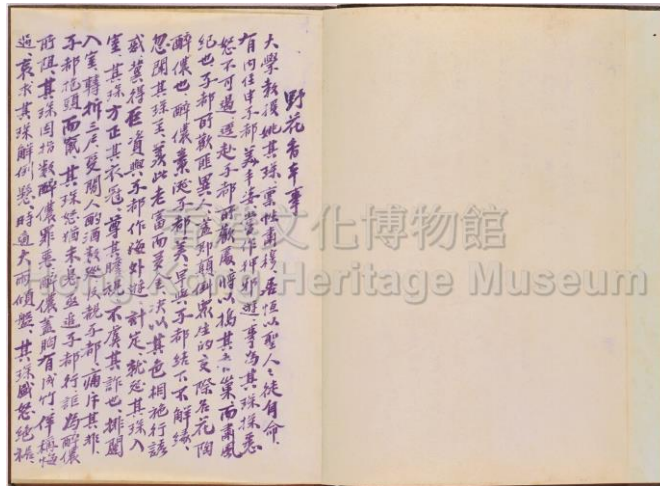 野花香本事
大學教授姚其珠、稟性肅穆、居恒以聖人之徒自命、
有內侄申子都、美丰姿、當作狎邪遊、事為其珠探悉
怒不可遏、遄赴子都所歡處、將以搗其香巢、而肅風
紀也、子都所歡匪異人、蓋即顛倒眾生的交際名花陶
醉儂也、醉儂素涎子都美、早與子都結下不解緣、
忽聞其珠至、羨此老富而多金、決以其色相施行誘
惑、冀得巨資與子都作海外遊、計定、就延其珠入
室、其珠方正其衣冠、尊其瞻視、不虞其詐也、排闥
入室、轉折三唇、雙關人酌酒數巡、叔視子都、痛斥其非、
子都抱頭而竄、其珠怒猶未息、亟追子都行、詎為醉儂
所阻、其珠因指數醉儂罪惡、醉儂蓋胸有成竹、佯稱悔
過、哀求其珠解倒懸、時適大雨傾盤、其珠盛怒絕裾、
香港文化博物館
Hong Kong Heritage Museum